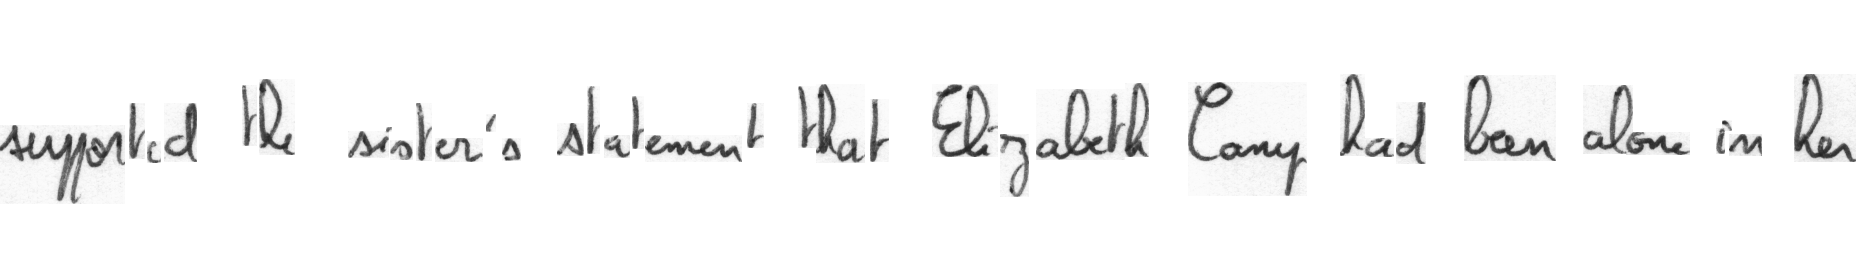 supported the sister's statement that Elizabeth Camp had been alone in her